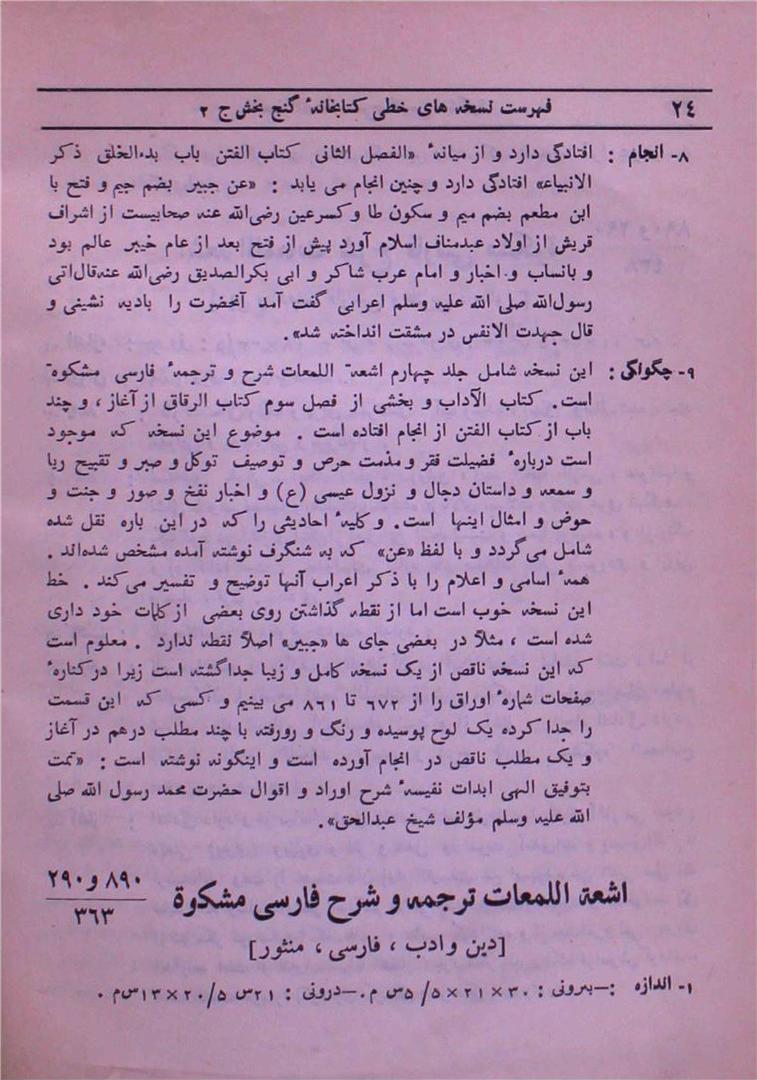 ۲٤ فهرست نسخه های خطی کتابخانهٔ گنج بخش ج ۲
۸- انجام : افتادگی دارد و از میانهٔ «الفصل الثانی کتاب الفتن باب بدءالخلق ذکر
الانبیاء» افتادگی دارد و چنین انجام می یابد : «عن جبیر بضم جیم و فتح با
ابن مطعم بضم میم و سکون طا و کسرعین رضی‌الله عنه صحابیست از اشراف
قریش از اولاد عبدمناف اسلام آورد پیش از فتح بعد از عام خیبر عالم بود
و بانساب و اخبار و امام عرب شاکر و ابی بکرالصدیق رضی‌الله عنه‌قال‌اتی
رسول‌الله صلی الله علیه وسلم اعرابی گفت آمد آنحضرت را بادیه نشینی و
قال جهدت الانفس در مشقت انداخته شد».
۹- چگونگی : این نسخه شامل جلد چهارم اشعة اللمعات شرح و ترجمهٔ فارسی مشکوة
است . کتاب الآداب و بخشی از فصل سوم کتاب الرقاق از آغاز ، و چند
باب از کتاب الفتن از انجام افتاده است . موضوع این نسخه که موجود
است دربارهٔ فضیلت فقر و مذمت حرص و توصیف توکل و صبر و تقبیح ریا
و سمعه و داستان دجال و نزول عیسی (ع) و اخبار نفخ و صور و جنت و
حوض و امثال اینها است. و کلیهٔ احادیثی را که در این باره نقل شده
شامل می گردد و با لفظ «عن» که به شنگرف نوشته آمده مشخص شده‌اند .
همهٔ اسامی و اعلام را با ذکر اعراب آنها توضیح و تفسیر می‌کند . خط
این نسخه خوب است اما از نقطه گذاشتن روی بعضی از کلمات خود داری
شده است ، مثلاً در بعضی جای ها «جبیر» اصلاً نقطه ندارد . معلوم است
که این نسخه ناقص از یک نسخه کامل و زیبا جداگشته است زیرا درکنارهٔ
صفحات شمارهٔ اوراق را از ۶۷۲ تا ۸۶۱ می بینیم و کسی که این قسمت
را جدا کرده یک لوح پوسیده و رنگ و رورفته با چند مطلب درهم در آغاز
و یک مطلب ناقص در انجام آورده است و اینگونه نوشته است : «تمت
بتوفیق الهی ابدات نفیسهٔ شرح اوراد و اقوال حضرت محمد رسول الله صلی
الله علیه وسلم مؤلف شیخ عبدالحق».
۸۹۰ و ۲۹۰
۳۶۳
اشعة اللمعات ترجمه و شرح فارسی مشکوة
[دین و ادب ، فارسی ، منثور]
۱- اندازه :—بیرونی : ۳۰×۲۱×۵/۵س م.—درونی : ۲۱س ۲۰/۵×۱۳س‌م .